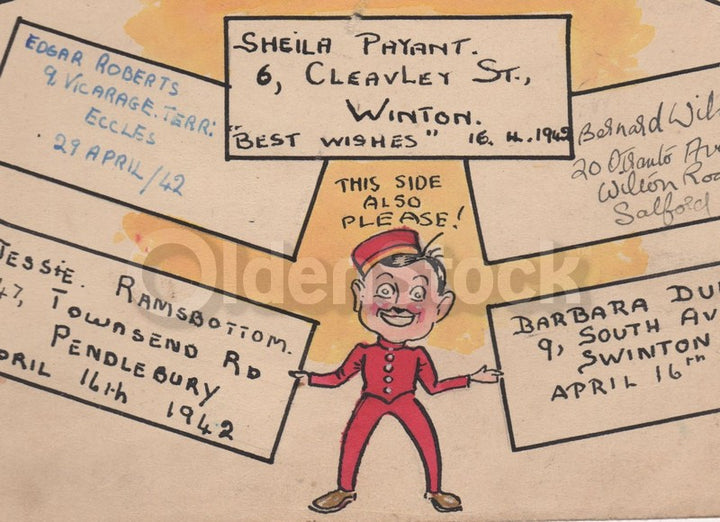 EDGAR ROBERTS
9, VICARAGE. TERR:
ECCLES
29 APRIL/42
SHEILA PAYANT.
6, CLEAVLEY ST.,
WINTON.
"BEST WISHES" 16.4.1942
Bernard
20 Otranto Ave
Wilton
Salford
THIS SIDE
ALSO
PLEASE!
JESSIE. RAMSBOTTOM.
47, TOWNSEND RD
PENDLEBURY
APRIL 16th 1942
BARBARA
9, SOUTH AV
SWINTON
APRIL 16TH
Oldenstock